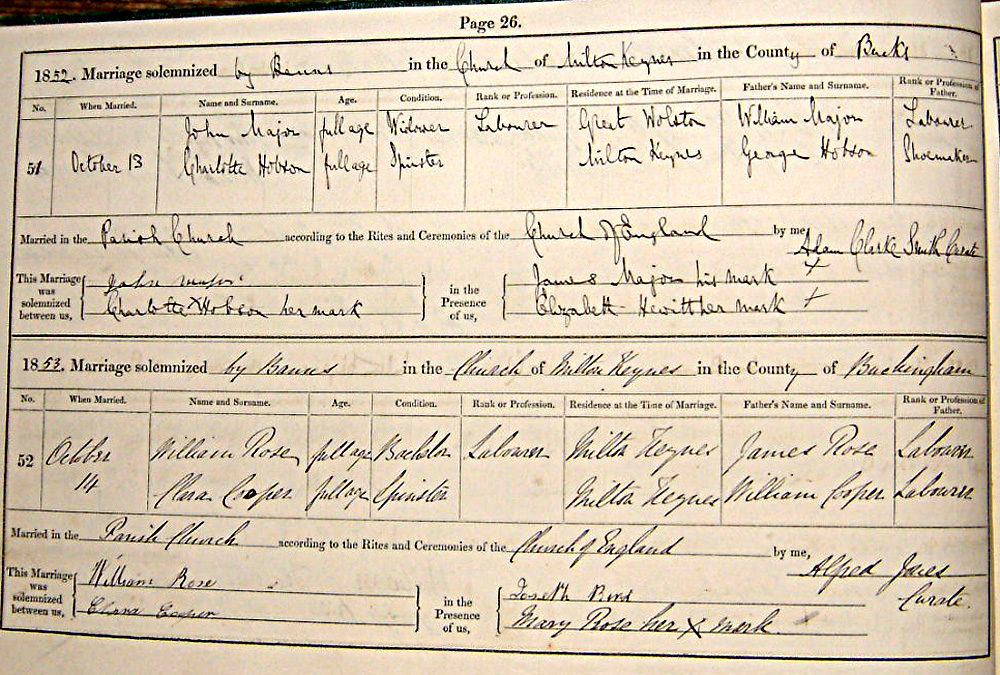 Page 26.
1852. Marriage solemnized by Banns in the Church of Milton Keynes in the County of Bucks
No. When Married. Name and Surname. Age. Condition. Rank or Profession. Residence at the Time of Marriage. Father's Name and Surname. Rank or Profession of Father.
John Major full age Widower Labourer Great Wolston William Major Labourer
51 October 13 Charlotte Hobson full age Spinster Milton Keynes George Hobson Shoemaker
Married in the Parish Church according to the Rites and Ceremonies of the Church of England by me, Adam Clarke Smith Curate
This Marriage was solemnized between us, John Major in the Presence of us, James Major his mark X
Charlotte X Hobson her mark Elizabeth Hewitt her mark +
1853. Marriage solemnized by Banns in the Church of Milton Keynes in the County of Buckingham
No. When Married. Name and Surname. Age. Condition. Rank or Profession. Residence at the Time of Marriage. Father's Name and Surname. Rank or Profession of Father.
52 October William Rose full age Bachelor Labourer Milton Keynes James Rose Labourer
14 Clara Cooper full age Spinster Milton Keynes William Cooper Labourer
Married in the Parish Church according to the Rites and Ceremonies of the Church of England by me, Alfred Jones Curate.
This Marriage was solemnized between us, William Rose in the Presence of us, Joseth
Clara Cooper Mary Rose her X mark